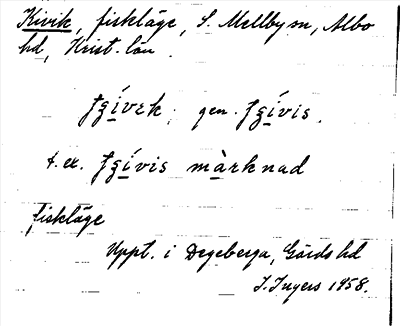 Kivik, fiskläge, S. Mellby sn, Albo
hd, Krist. län.
gen.
t. ex. màrknad
fiskläge
Uppt. i Degeberga, Gärds hd
I. Ingers 1958.